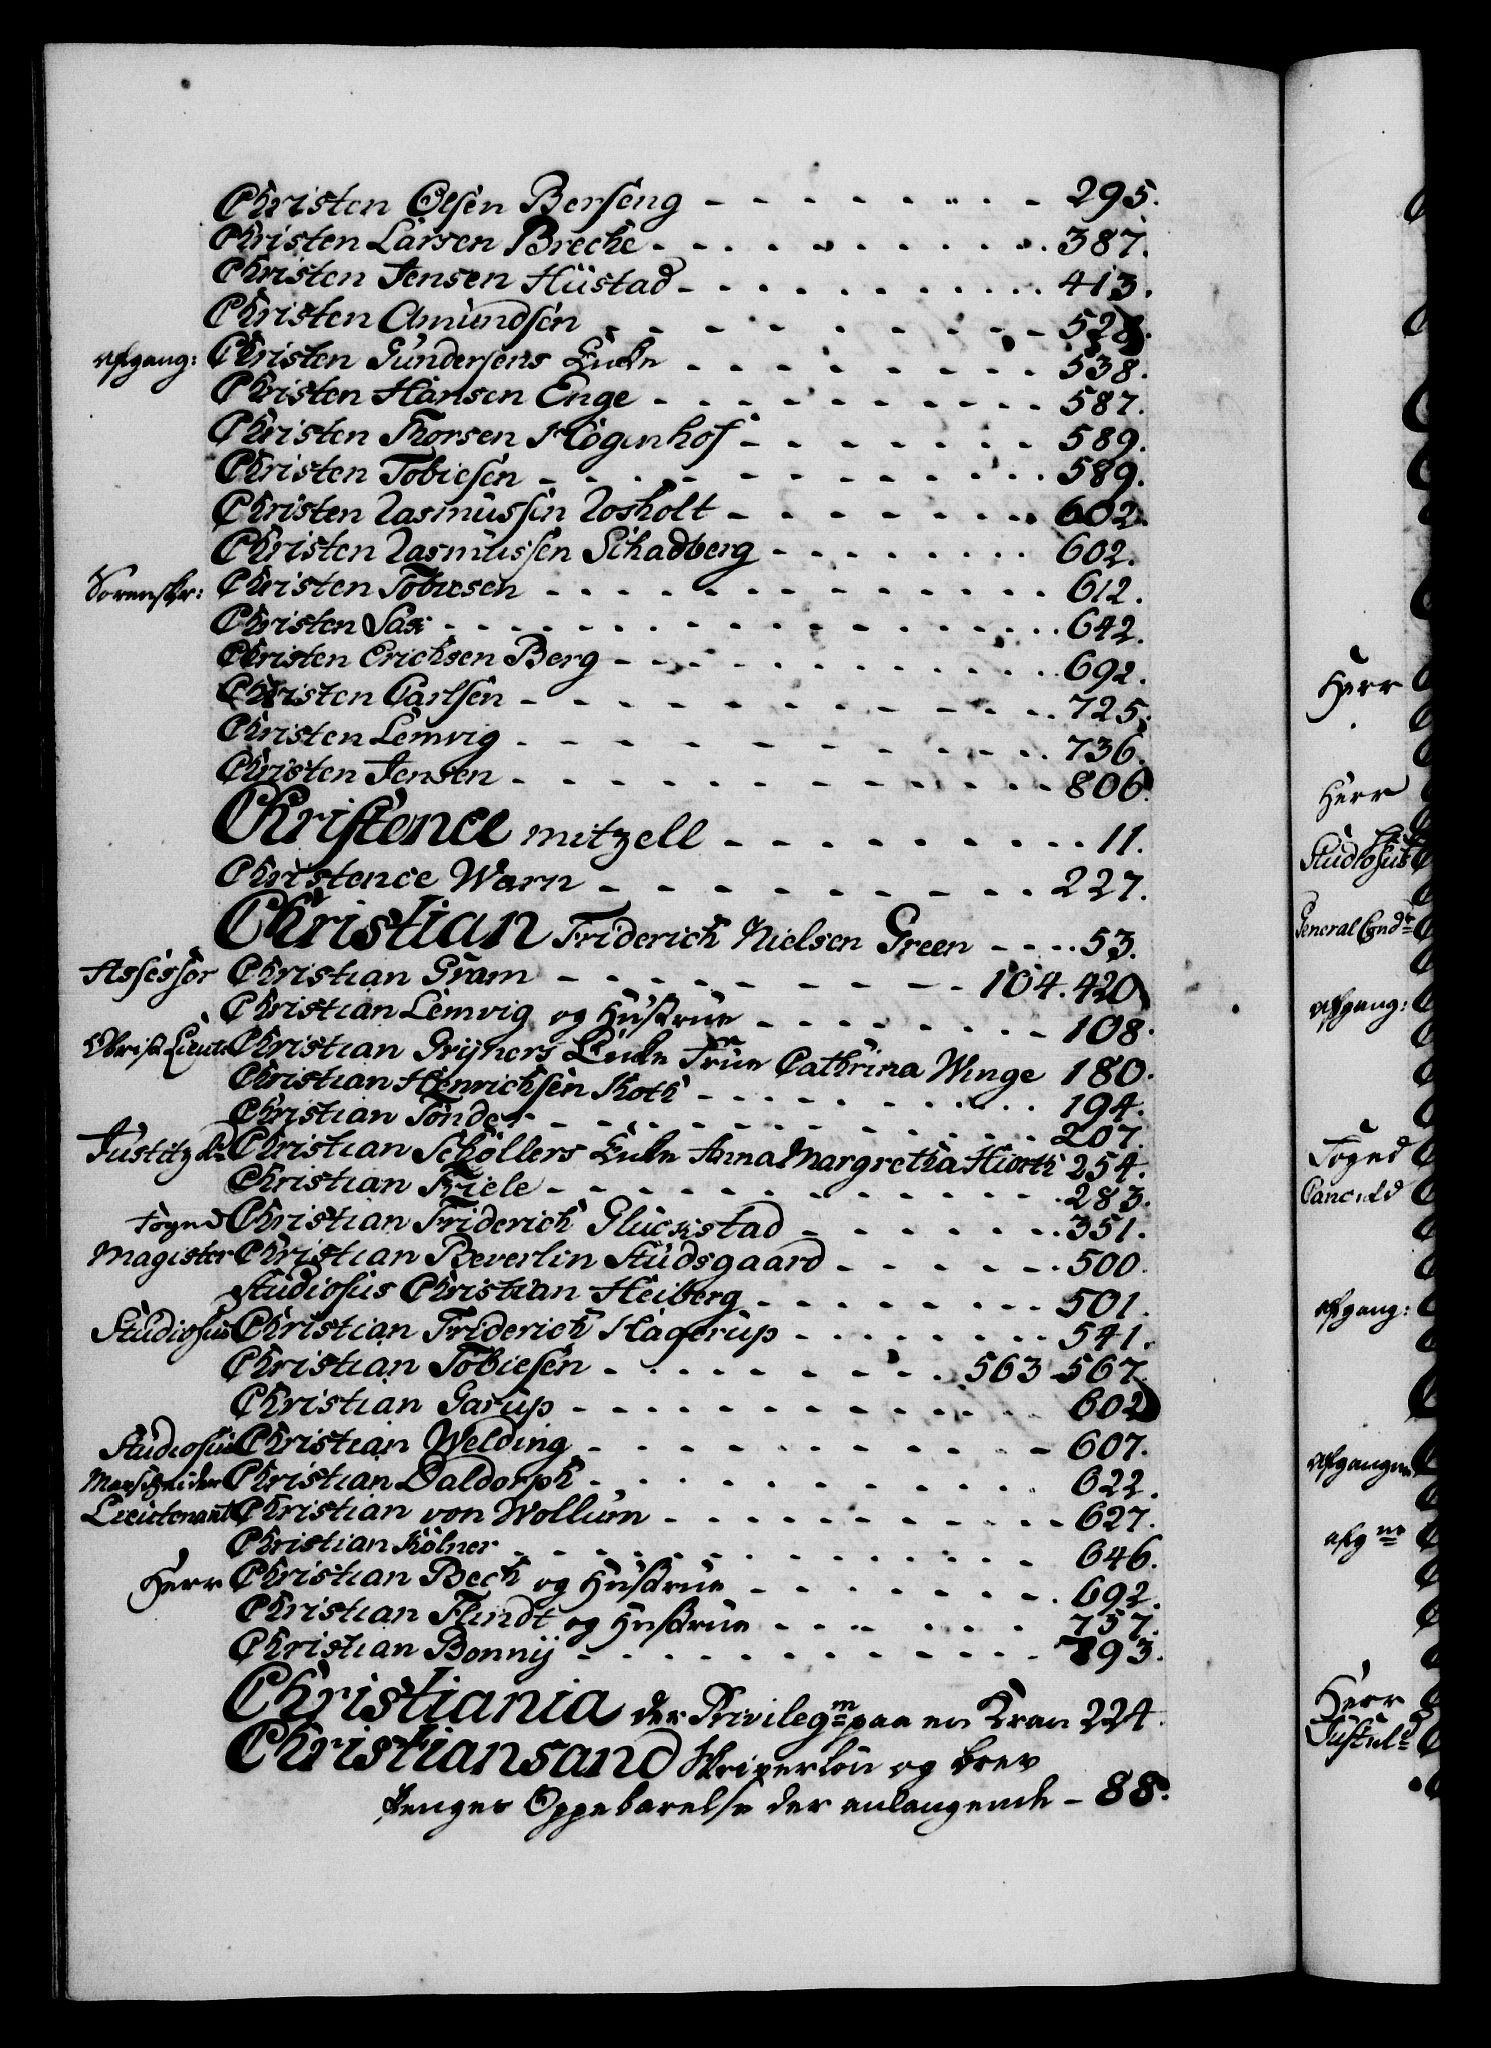 Christen Olsen Berseng - - - - - - - - - 295.
Christen Larsen Breche - - - - - - - - - - 387.
Christen Jensen Hüstad - - - - - - - - - - 413.
Christen Amundsen - - - - - - - - - - 528.
afgang: Christen Gundersens Encke - - - - - - - - - 538.
Christen Hansen Enge - - - - - - - - - - 587.
Christen Thorsen Høgenhof - - - - - - - - 589.
Christen Tobiesen - - - - - - - - - - - - 589.
Christen Rasmussen Rosholt - - - - - - - - 602.
Christen Rasmussen Schadberg - - - - - - - 602.
Sorenskr: Christen Tobiesen - - - - - - - - - - - - 612.
Christen Sax - - - - - - - - - - - - - - 642.
Christen Erichsen Berg - - - - - - - - - - 692.
Christen Carlsen - - - - - - - - - - - - 725.
Christen Lemvig - - - - - - - - - - - - 736.
Christen Jensen - - - - - - - - - - - - 806.
Christence Mitzell - - - - - - - - - 11.
Christence Warn - - - - - - - - - - 227.
Christian Friderich Nielsen Green - - - - 53.
Assessor Christian Gram - - - - - - - - - 104. 420
Christian Lemvig og Hustrue - - - - - - - - 108.
Obrist Lieut: Christian Grijners Encke Frue Cathrina Winge 180.
Christian Henrichsen Koth - - - - - - - - - 194.
Christian Tønder - - - - - - - - - - - - 207.
Justitz R: Christian Schøllers Encke Anna Margretha Hiorth 254.
Christian Friele - - - - - - - - - - - - 283.
Foged Christian Friderich Glückstad - - - - - - - 351.
Magister Christian Beverlin Studsgaard - - - - - - 500.
Studiosus Christian Heiberg - - - - - - - - 501.
Studiosus Christian Friderich Hagerup - - - - - - - - 541.
Christian Tobiesen - - - - - - - - - 563 - 567.
Christian Garup - - - - - - - - - - - 602
Studiosus Christian Welding - - - - - - - - - - 607.
Marscheider Christian Daldorph - - - - - - - - - - - 622.
Lieutenant Christian von Wollum - - - - - - - - - - 627.
Christian Kølner - - - - - - - - - - - - 646.
Herr Christian Bech og Hustrue - - - - - - - - 692.
Christian Flindt og Hustrue - - - - - - - 757.
Christian Bonnij - - - - - - - - - - - - 793.
Christiania der Privileg:m paa en Kran 224.
Christiansand Skriverløn og brev
Penges Oppebørelse der anlangende - 88.
Herr
Herr
Studiosus
General Cond:r
afgang:
Foged
afgang:
afgangne
afg:ne
Herr